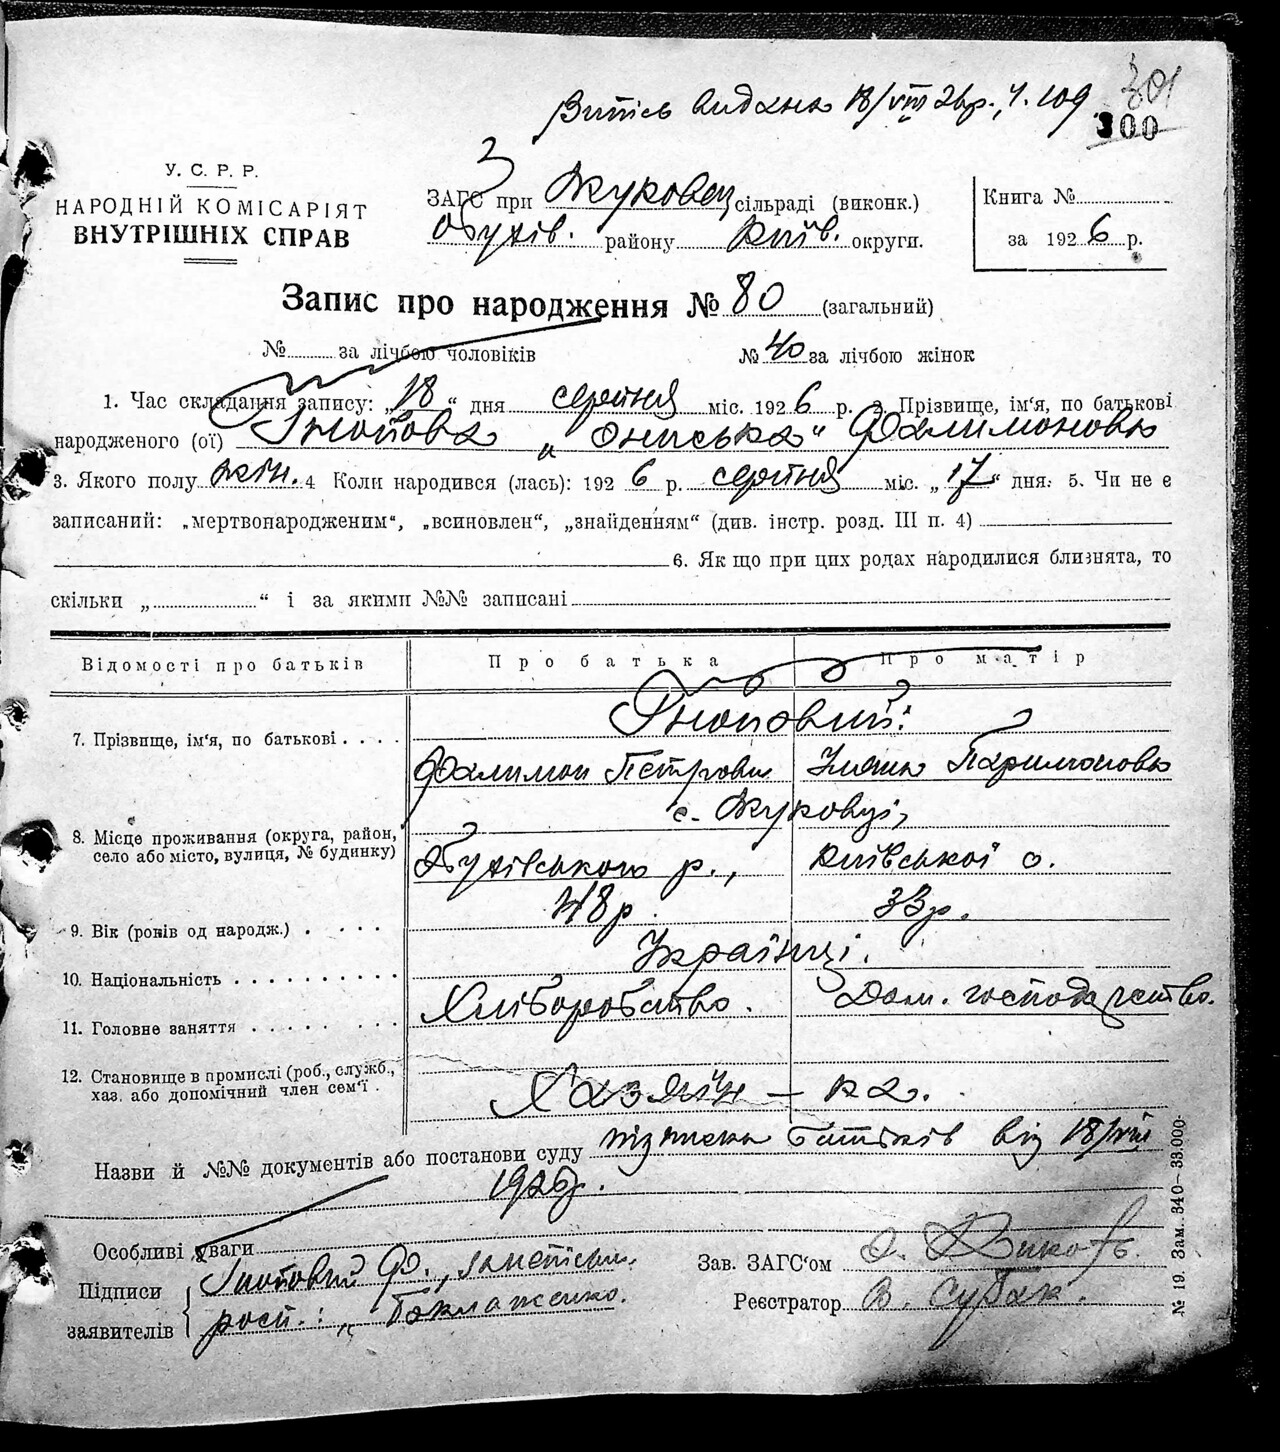 Витісь видана 18/VIII 26р., ч. 109
301
300
У. С. Р. Р.
НАРОДНІЙ КОМІСАРІЯТ
ВНУТРІШНІХ СПРАВ
ЗАГС при Жуковец сільраді (виконк.)
Обухів. району Київ. округи.
Книга №
за 1926 р.
Запис про народження № 80 (загальний)
№ за лічбою чоловіків № 40 за лічбою жінок
1. Час складання запису: „18“ дня серпня міс. 1926 р. 2. Прізвище, ім'я, по батькові
народженого (ої) „Ониська“ Фалимоновна
3. Якого полу жін. 4 Коли народився (лась): 1926 р. серпня міс. „17“ дня. 5. Чи не є
записаний: „мертвонародженим“, „всиновлен“, „знайденням“ (див. інстр. розд. III п. 4)
6. Як що при цих родах народилися близнята, то
скільки „ “ і за якими №№ записані
Відомості про батьків Про батька Про матір
7. Прізвище, ім'я, по батькові . . . .
Фалимон Петрович Паримоновна
с. Жуковці,
8. Місце проживання (округа, район, село або місто, вулиця, № будинку)
Обухівського р., Київської о.
9. Вік (років од народж.) . . . . 48р. 33р.
10. Національність . . . . . . . . . Українці.
11. Головне заняття . . . . . . . . Хліборобство. Дом. господарство.
12. Становище в промислі (роб., служб., хаз. або допомічний член сем'ї . Хазяїн — ка.
Назви й №№ документів або постанови суду підписка батьків від 18/VIII
1926р.
Особливі уваги
Підписи заявителів Ф.,
рост.: Баклаженко.
Зав. ЗАГС'ом
Реєстратор В.
№ 19. Зам. 340—33.000